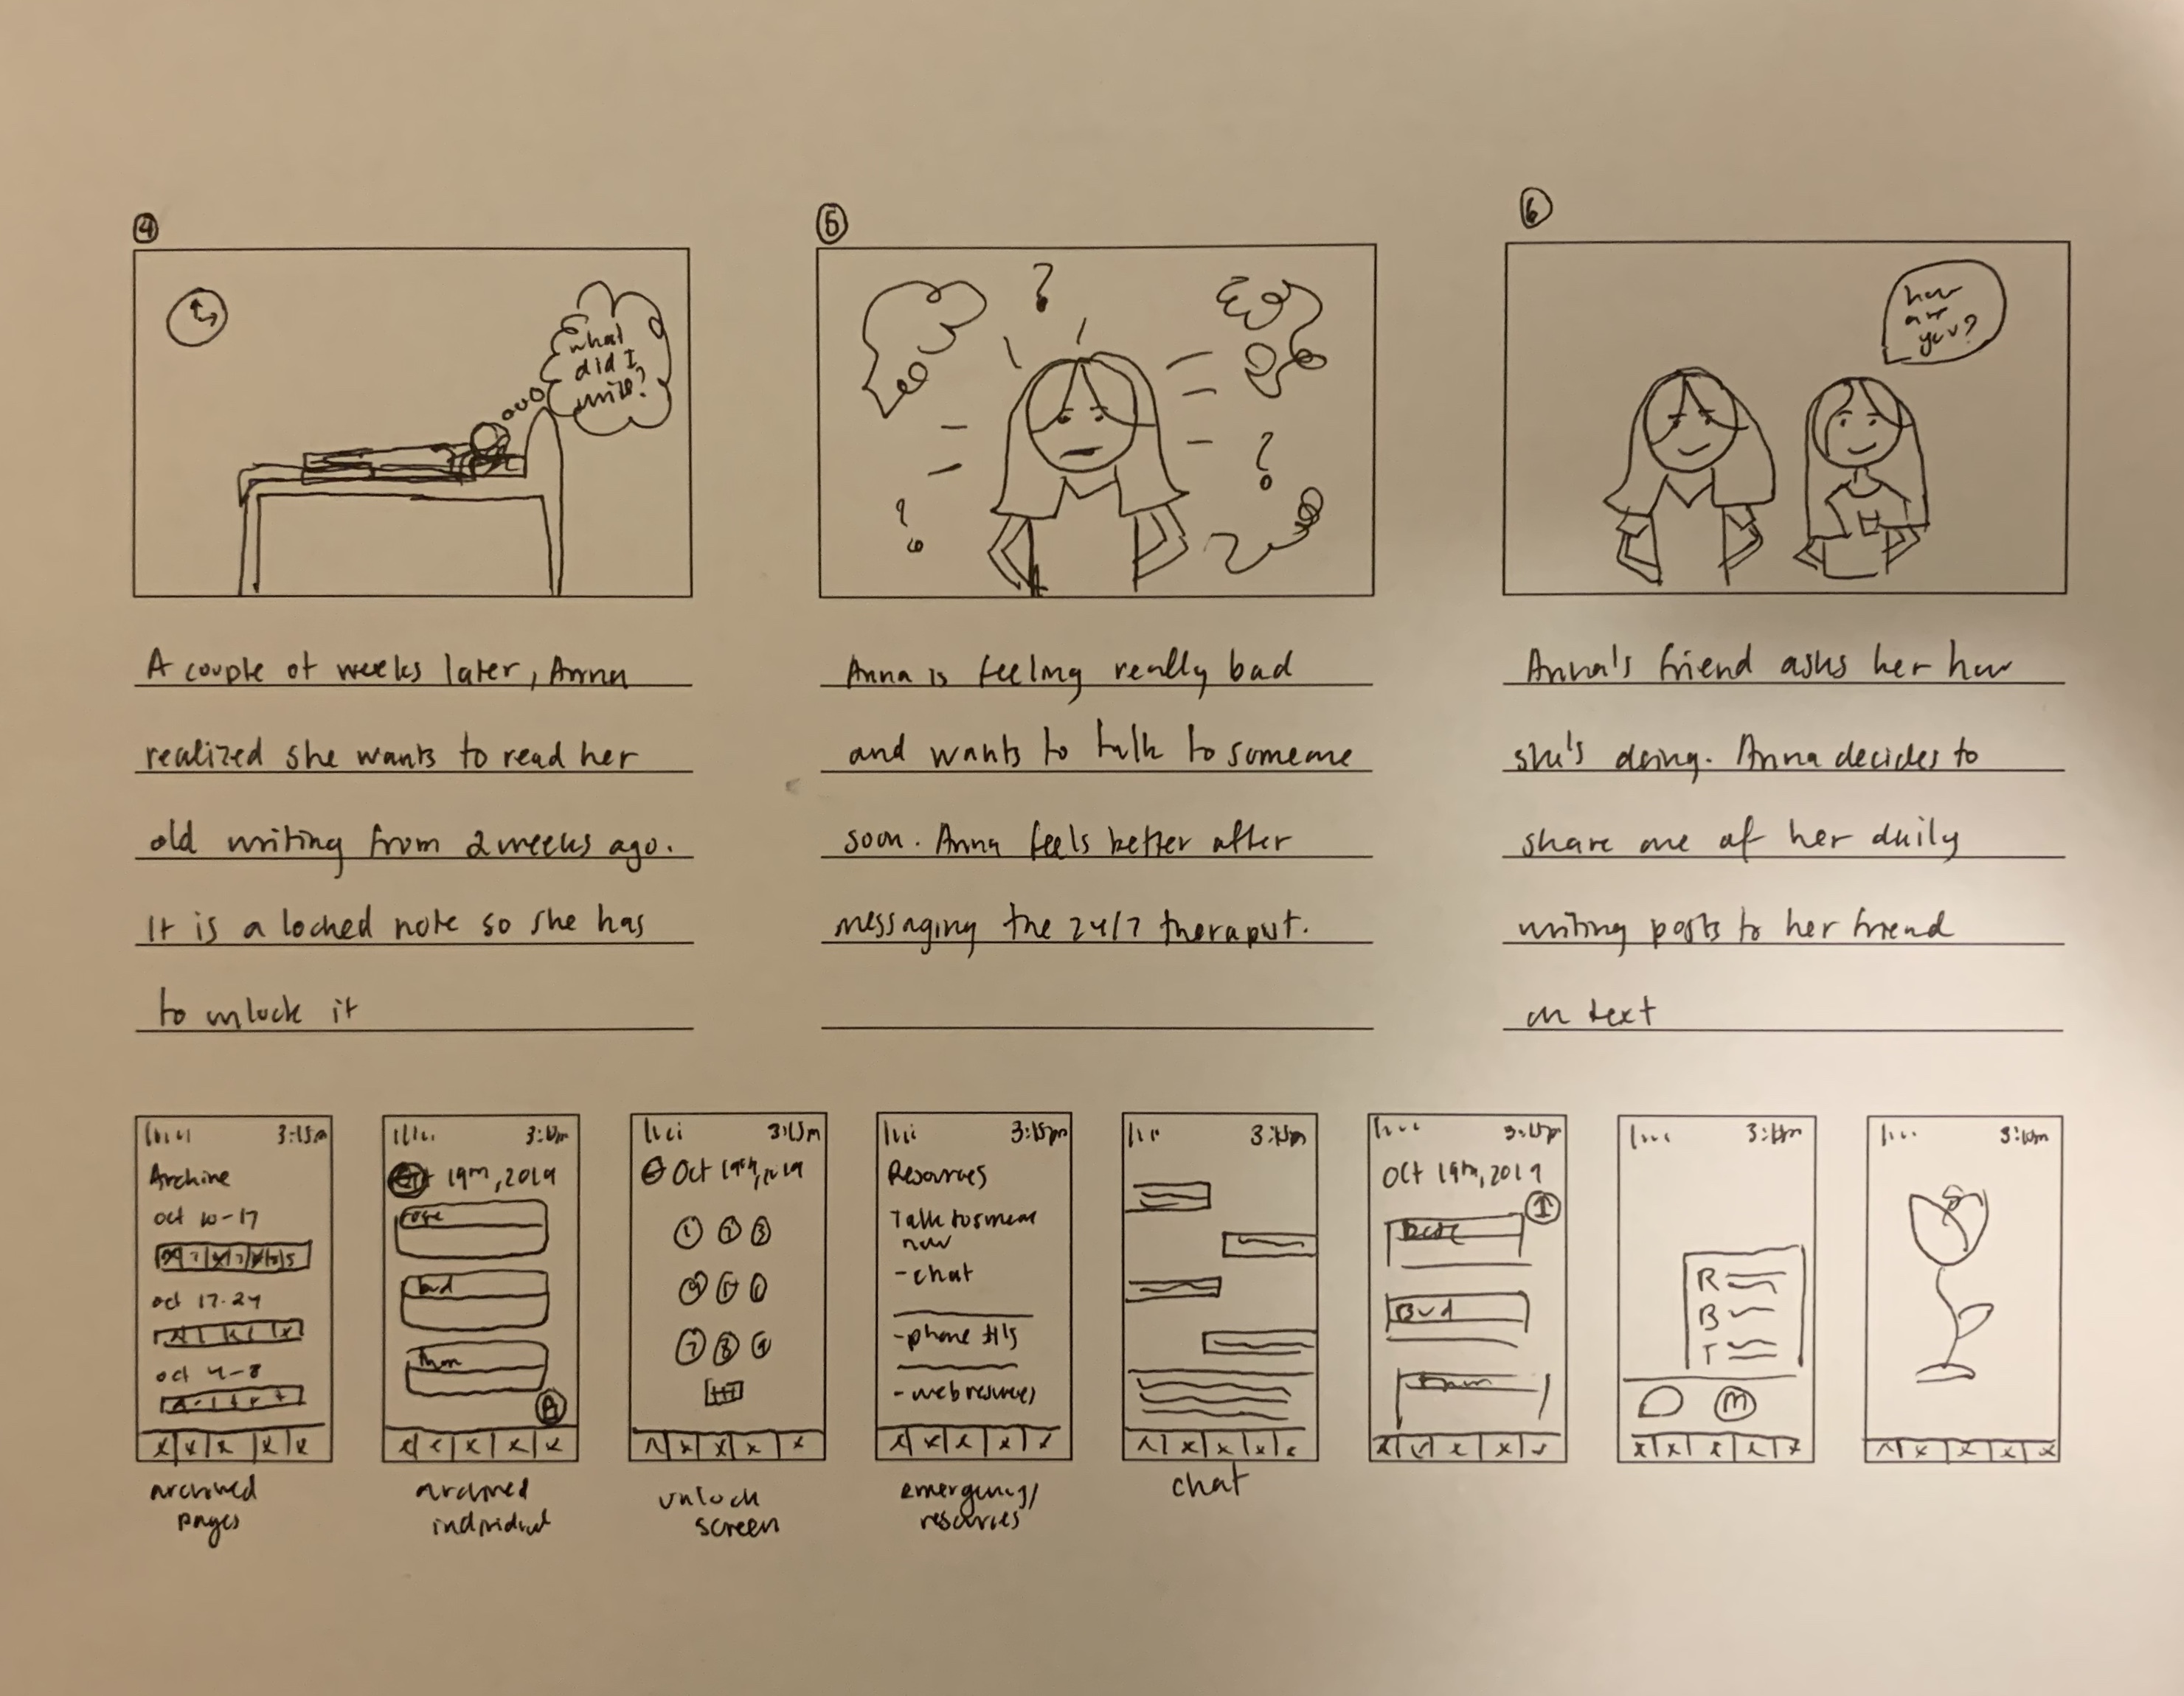 4
what
did I
write?
A couple of weeks later, Anna
realized she wants to read her
old writing from 2 weeks ago.
It is a locked note so she has
to unlock it
5
?
?
?
Anna is feeling really bad
and wants to talk to someone
soon. Anna feels better after
messaging the 24/7 therapist.
6
how
are
you?
Anna's friend asks her how
she's doing. Anna decides to
share one of her daily
writing posts to her friend
on text
3:15m
Archive
oct 10-17
oct 17-24
oct 4-8
archived
pages
19th, 2019
rose
bud
thorn
archived
individual
3:15m
Oct 19th, 2019
1 2 3
7 8 9
unlock
screen
3:15pm
Resources
Talk to someone
now
- chat
- phone #'s
- web resources
emergency/
resources
chat
Oct 19th, 2019
Bud
R
B
T
M